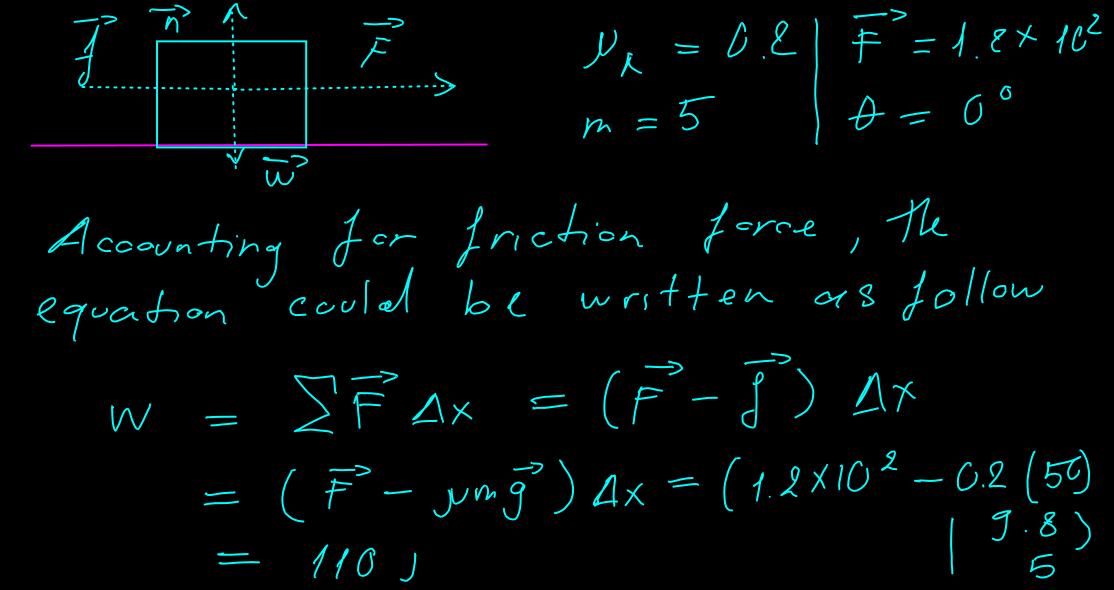 f⃗ n⃗ F⃗
w⃗
μₖ = 0.2 | F⃗ = 1.2 × 10²
m = 5 | θ = 0°
Accounting for friction force, the
equation could be written as follow
W = ∑F⃗ Δx = (F⃗ - f⃗) Δx
= (F⃗ - μmg⃗) Δx = (1.2×10² - 0.2 (50)
| 9.8)
= 110 J 5